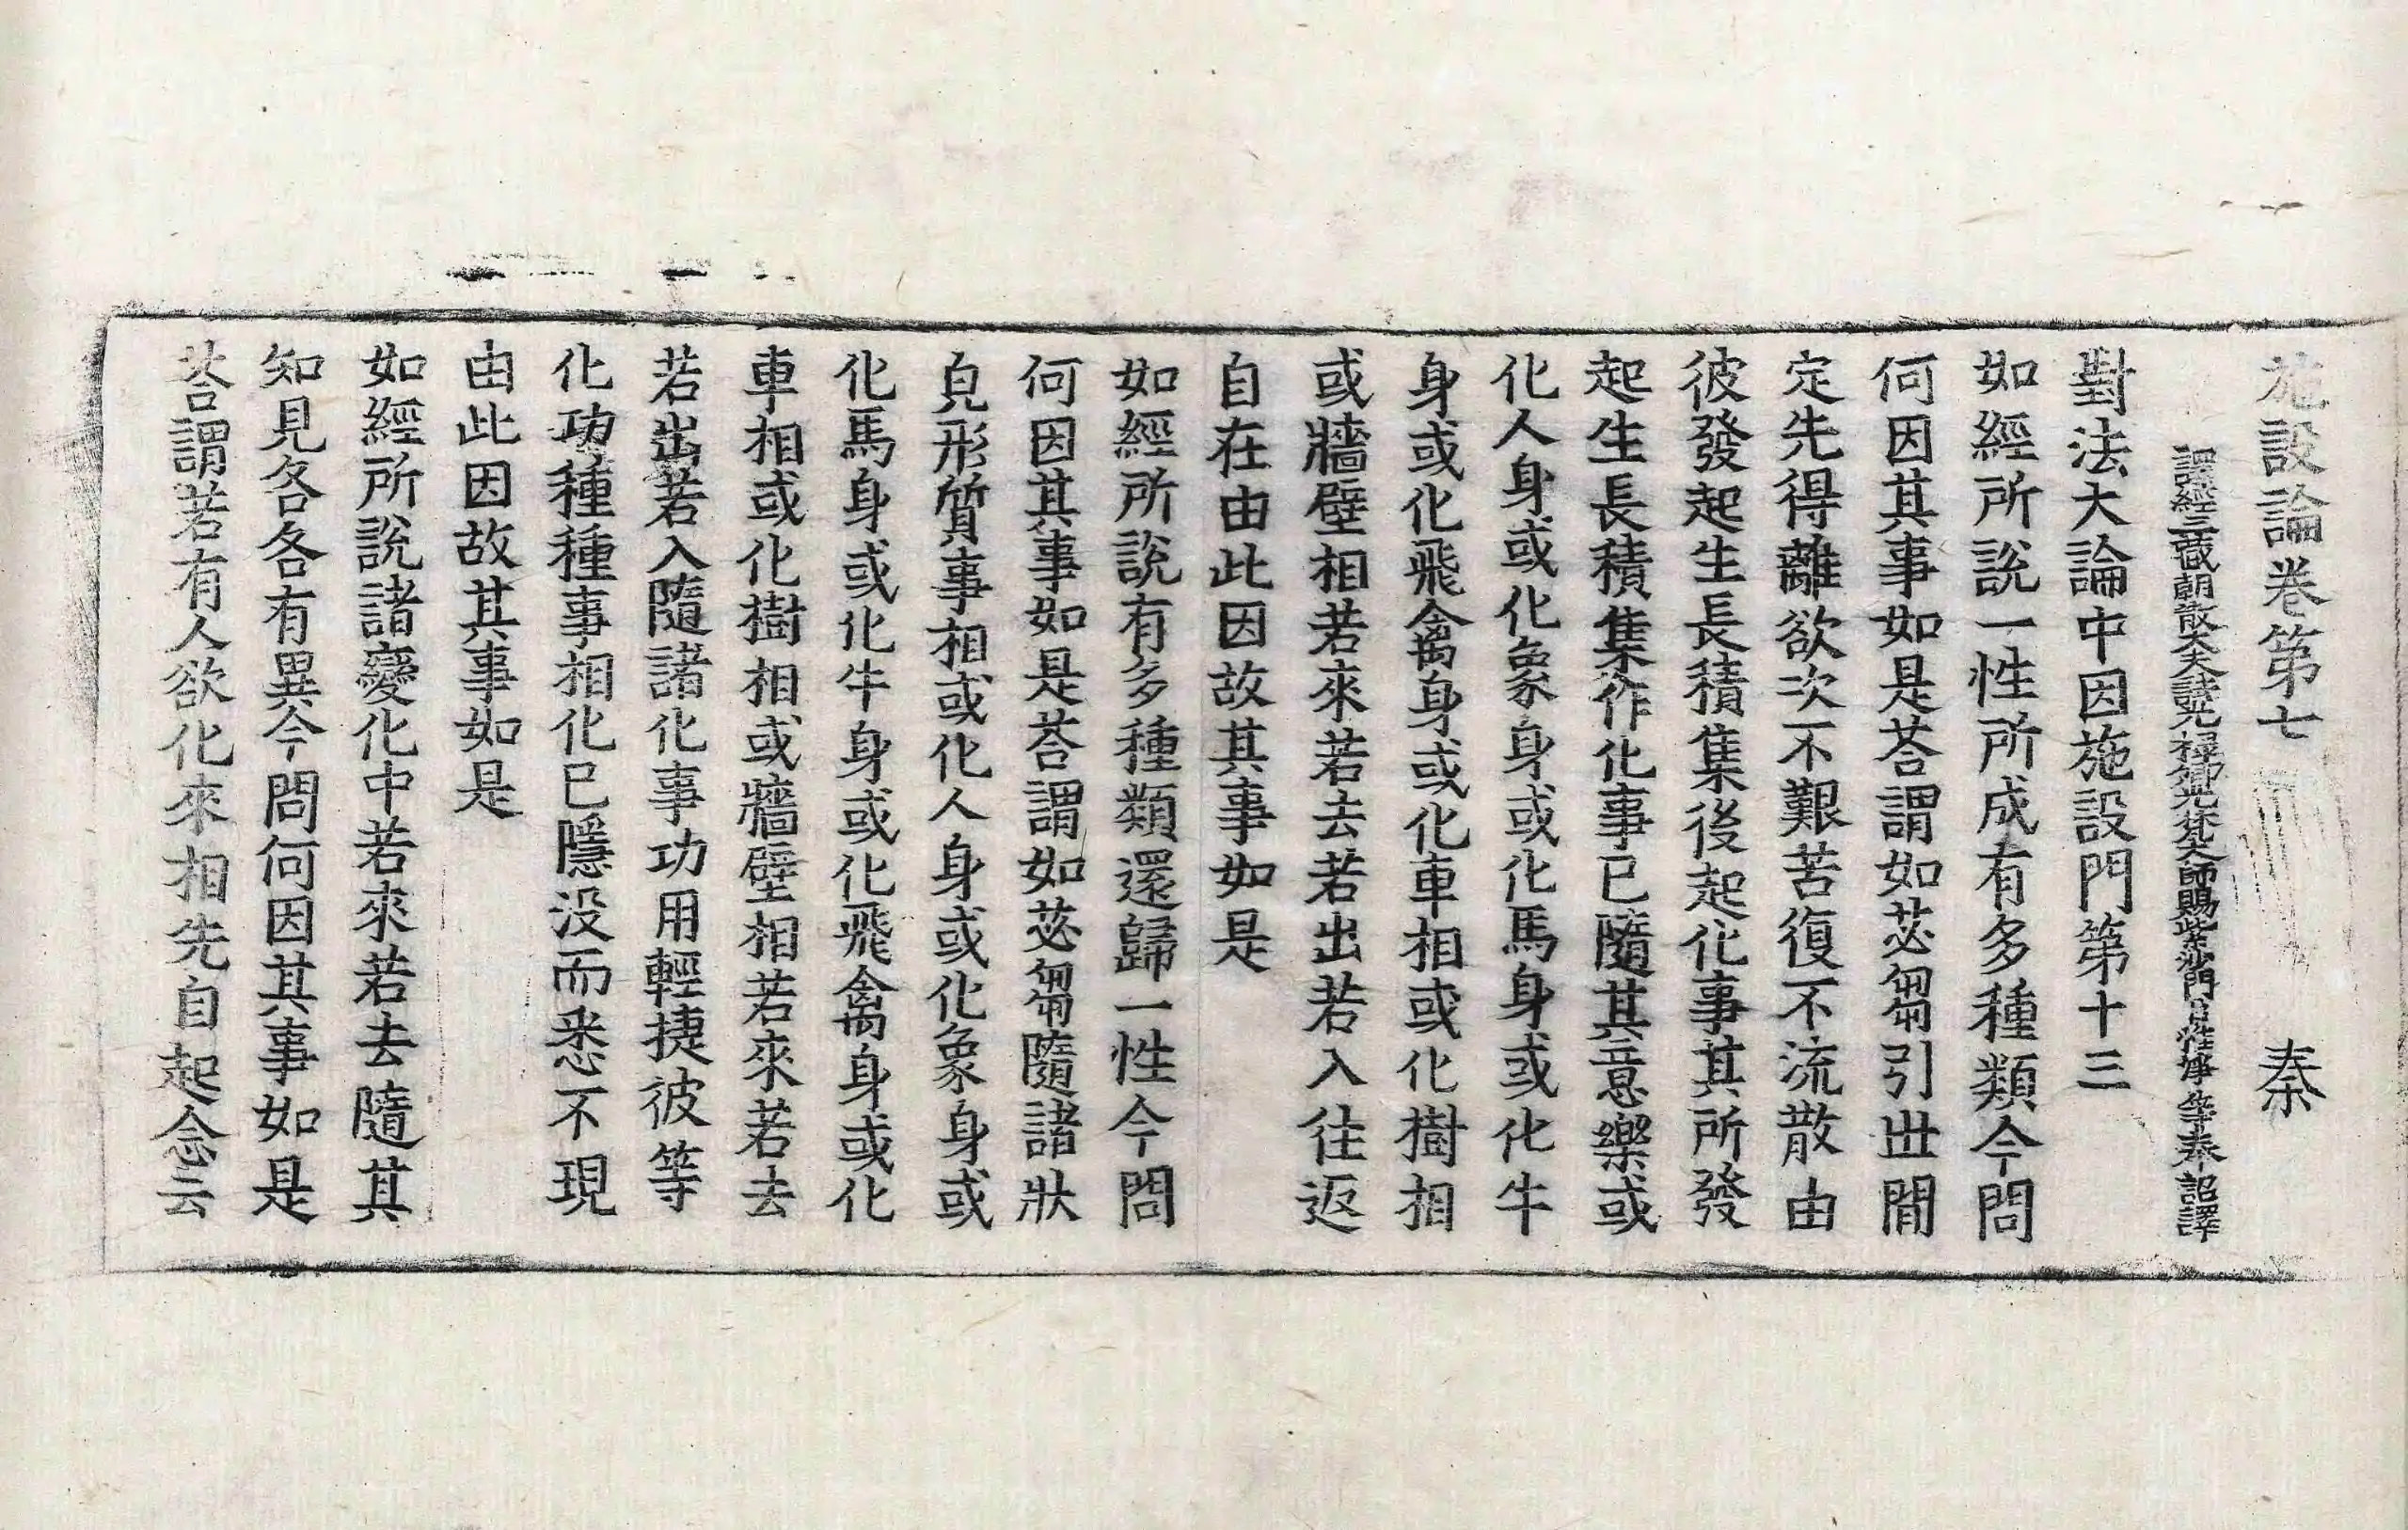 施設論卷第七 秦
譯經三藏朝散大夫試光祿卿光梵大師賜紫沙門臣惟淨等奉詔譯
對法大論中因施設門第十三
如經所說一性所成有多種類今問
何因其事如是荅謂如苾芻引世閒
定先得離欲次不艱苦復不流散由
彼發起生長積集後起化事其所發
起生長積集作化事已隨其意樂或
化人身或化象身或化馬身或化牛
身或化飛禽身或化車相或化樹相
或牆壁相若來若去若出若入往返
自在由此因故其事如是
如經所說有多種類還歸一性今問
何因其事如是荅謂如苾芻隨諸狀
皃形質事相或化人身或化象身或
化馬身或化牛身或化飛禽身或化
車相或化樹相或牆壁相若來若去
若出若入隨諸化事功用輕捷彼等
化功種種事相化已隱没而悉不現
由此因故其事如是
如經所說諸變化中若來若去隨其
知見各各有異今問何因其事如是
荅謂若有人欲化來相先自起念云